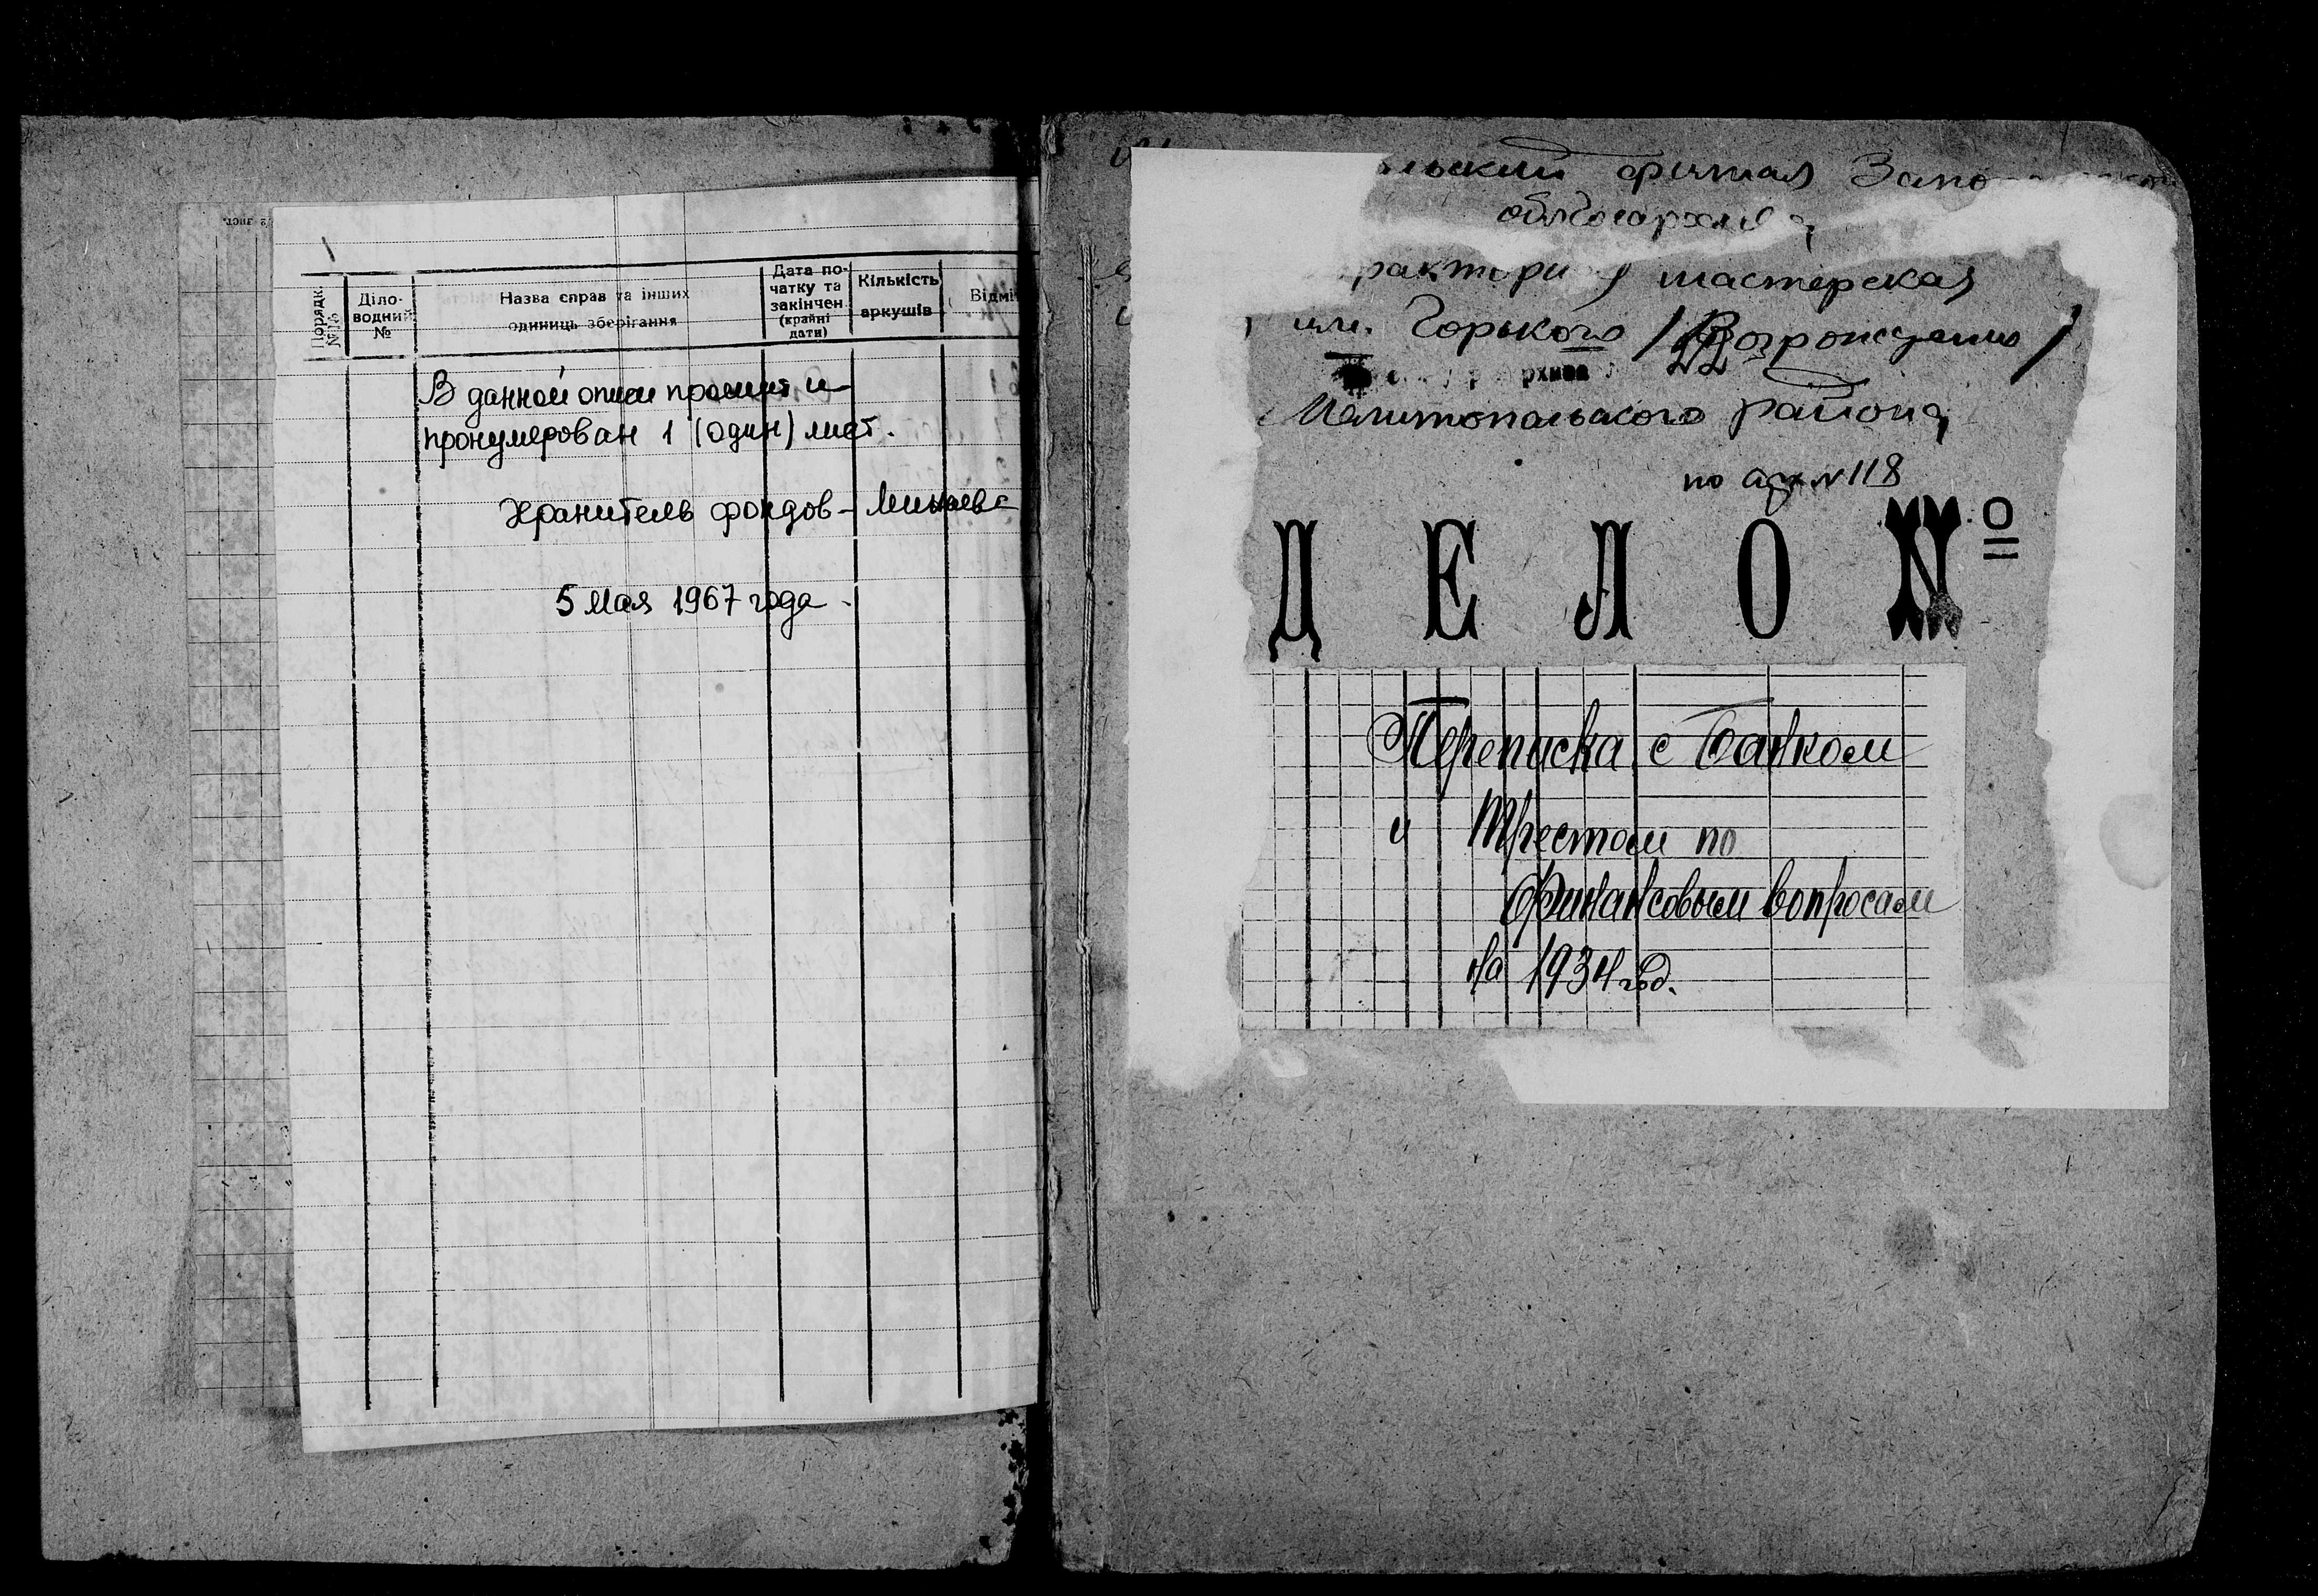 1
Порядк. №№
Діло-
водний
№
Назва справ та інших
одиниць зберігання
Дата по-
чатку та
закінчен.
(крайні
дати)
Кількість
аркушів
Відмі
В данной описи прошит и
пронумерован 1 (один) лист.
Хранитель фондов - Минаева
5 мая 1967 года
льский филиал Запо
облгосархива
ракторная мастерская
им. Горького /Возрождение/
Мелитопольского района
по арх №118
ДЕЛО №
Переписка с Банком
и Трестом по
финансовым вопросам
на 1934 год.